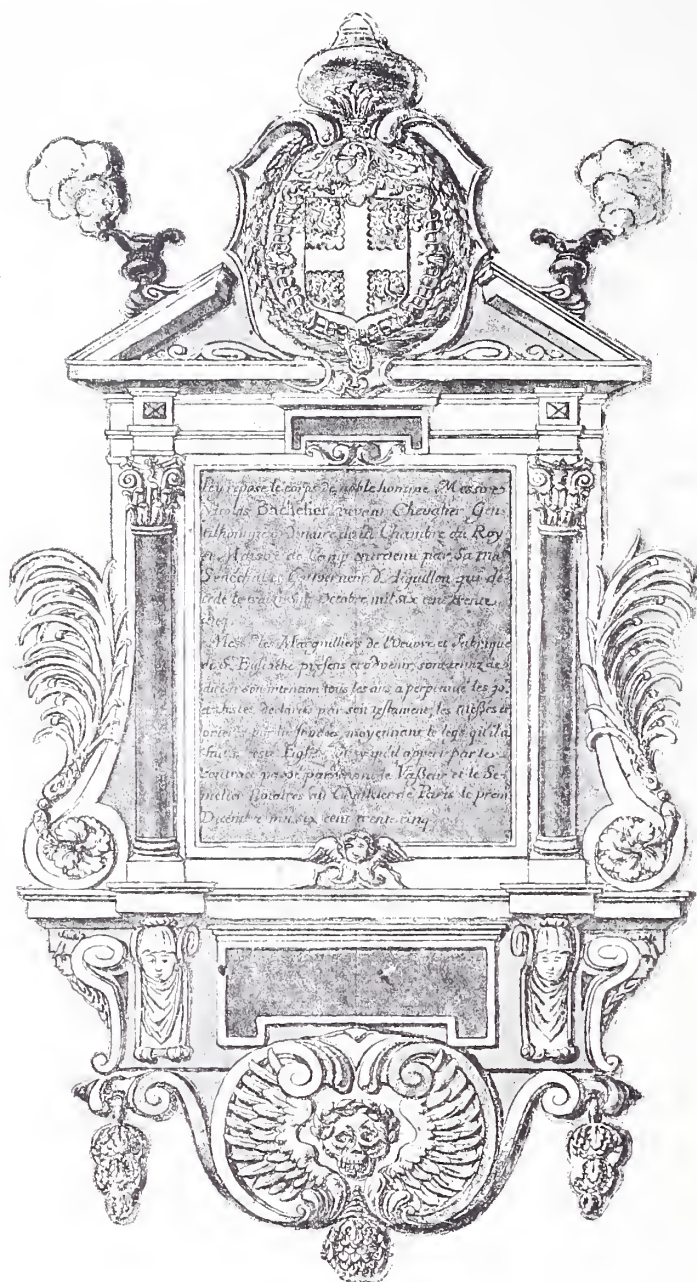 Icy repose le corps de noble homme Messire
Nicolas Bachelier vivant Chevalier Gen
tilhomme ordinaire de la Chambre du Roy
et Maistre de Camp entretenu par Sa Ma
Senechal et Gouverneur d'Aiguillon qui de
ceda le Octobre mil six cens trente
cinq.
Mess.rs les Marguilliers de l'oeuvre et fabrique
de S. Eustache presens et advenir sont tenus de
dire tous les ans a perpetuité les
declarés par son testament, les messes et
moyennant le legs qu'il a
fait a ceste Eglise par le
contract passé pardevant le Vasseur et le Se
melier Notaires au Chastelet de Paris le prem
Decembre mil six cent trente cinq